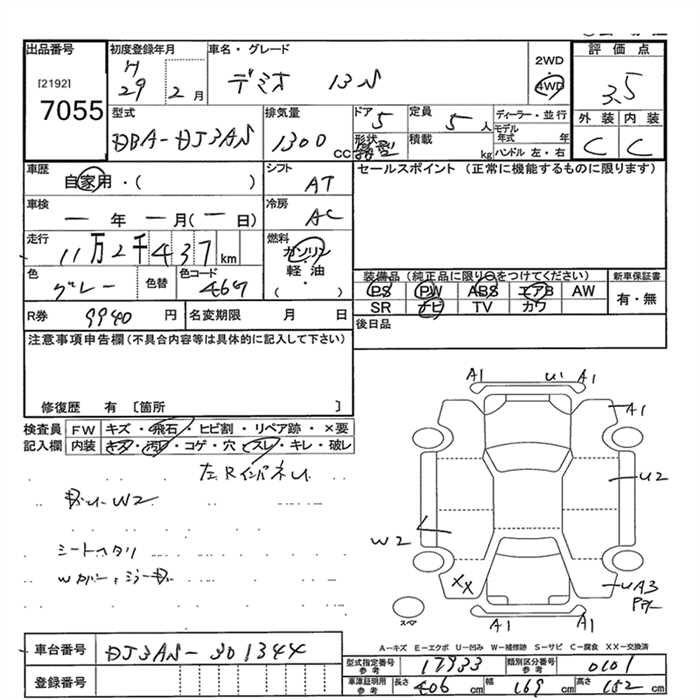 出品番号 初度登録年月 車名・グレード 評価点
[2192] H 29 2月 デミオ 13S 2WD 4WD 3.5
7055 型式 排気量 ドア 5 定員 5人 ディーラー・並行 外装 内装
DBA-DJ3AS 1300 CC 形状 箱型 積載 kg モデル年式 年 ハンドル 左・右 C C
車歴 自家用・( ) シフト AT セールスポイント (正常に機能するものに限ります)
車検 ー年 ー月 (ー日) 冷房 AC
走行 11万2千437km 燃料 ガソリン 軽油 ( ・ )
色 グレー 色替 色コード 46G 装備品(純正品に限り○をつけてください) 新車保証書
PS PW ABS エアB AW 有・無
SR ナビ TV カワ
R券 9940 円 名変期限 月 日 後日品
注意事項申告欄(不具合内容等は具体的に記入して下さい)
修復歴 有 [箇所 ]
検査員 FW キズ・飛石・ヒビ割・リペア跡・×要
記入欄 内装 キズ・汚レ・コゲ・穴・スレ・キレ・破レ
左RインパネU
W2
シートヘタリ
A1 U1 A1
A1
U2
W2
XX UA3
A1 A1
スペア
A-キズ E-エクボ U-凹み W-補修跡 S-サビ C-腐食 XX-交換済
車台番号 DJ3AS-301344 型式指定番号 参考 17933 類別区分番号 参考 0101
登録番号 車庫証明用 参考 長さ 406 cm 幅 169 cm 高さ 152 cm